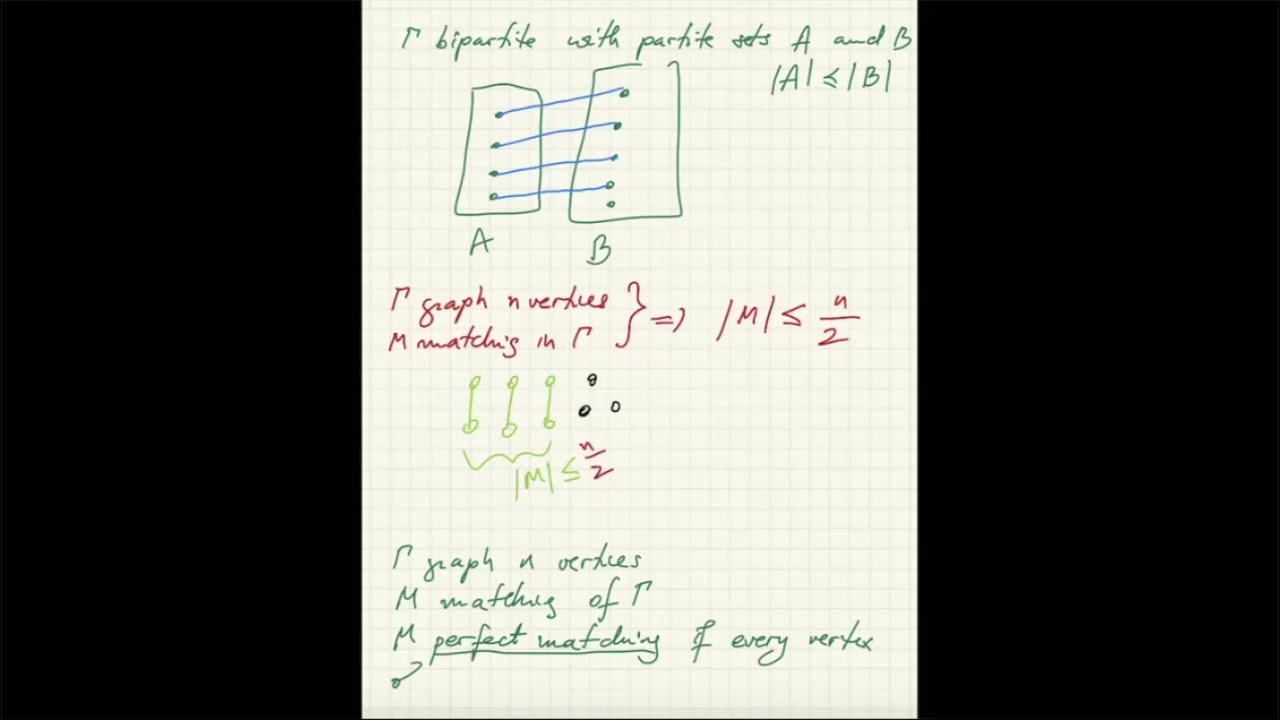 Γ bipartite with partite sets A and B
|A| ≤ |B|
A B
Γ graph n vertices
M matching in Γ } => |M| ≤ n/2
|M| ≤ n/2
Γ graph n vertices
M matching of Γ
M perfect matching if every vertex